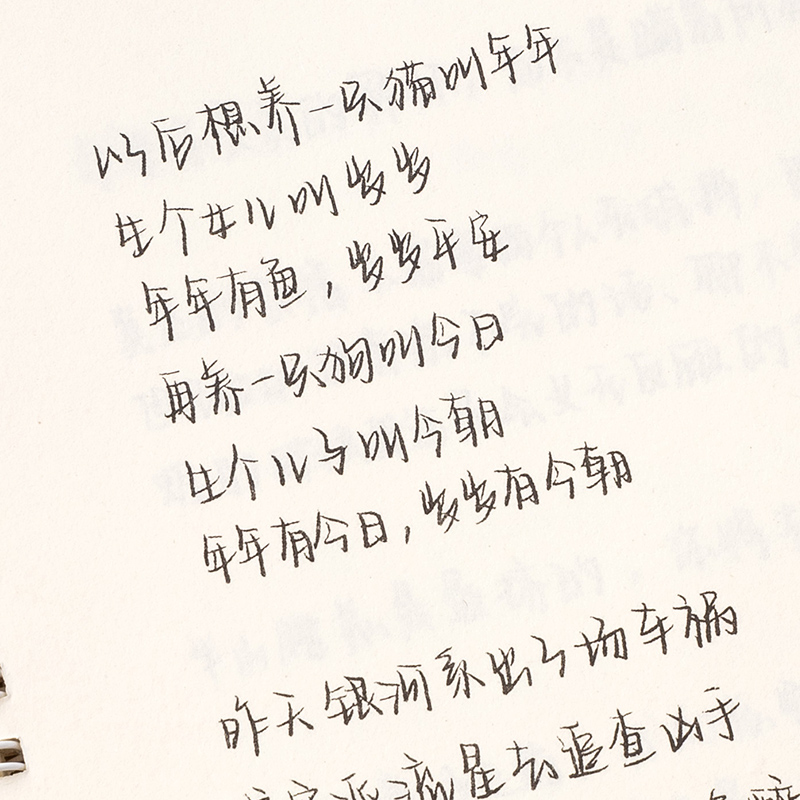 以后想养一只猫叫年年
生个女儿叫岁岁
年年有鱼，岁岁平安
再养一只狗叫今日
生个儿子叫今朝
年年有今日，岁岁有今朝
昨天银河系出了场车祸
派流星去追查凶手